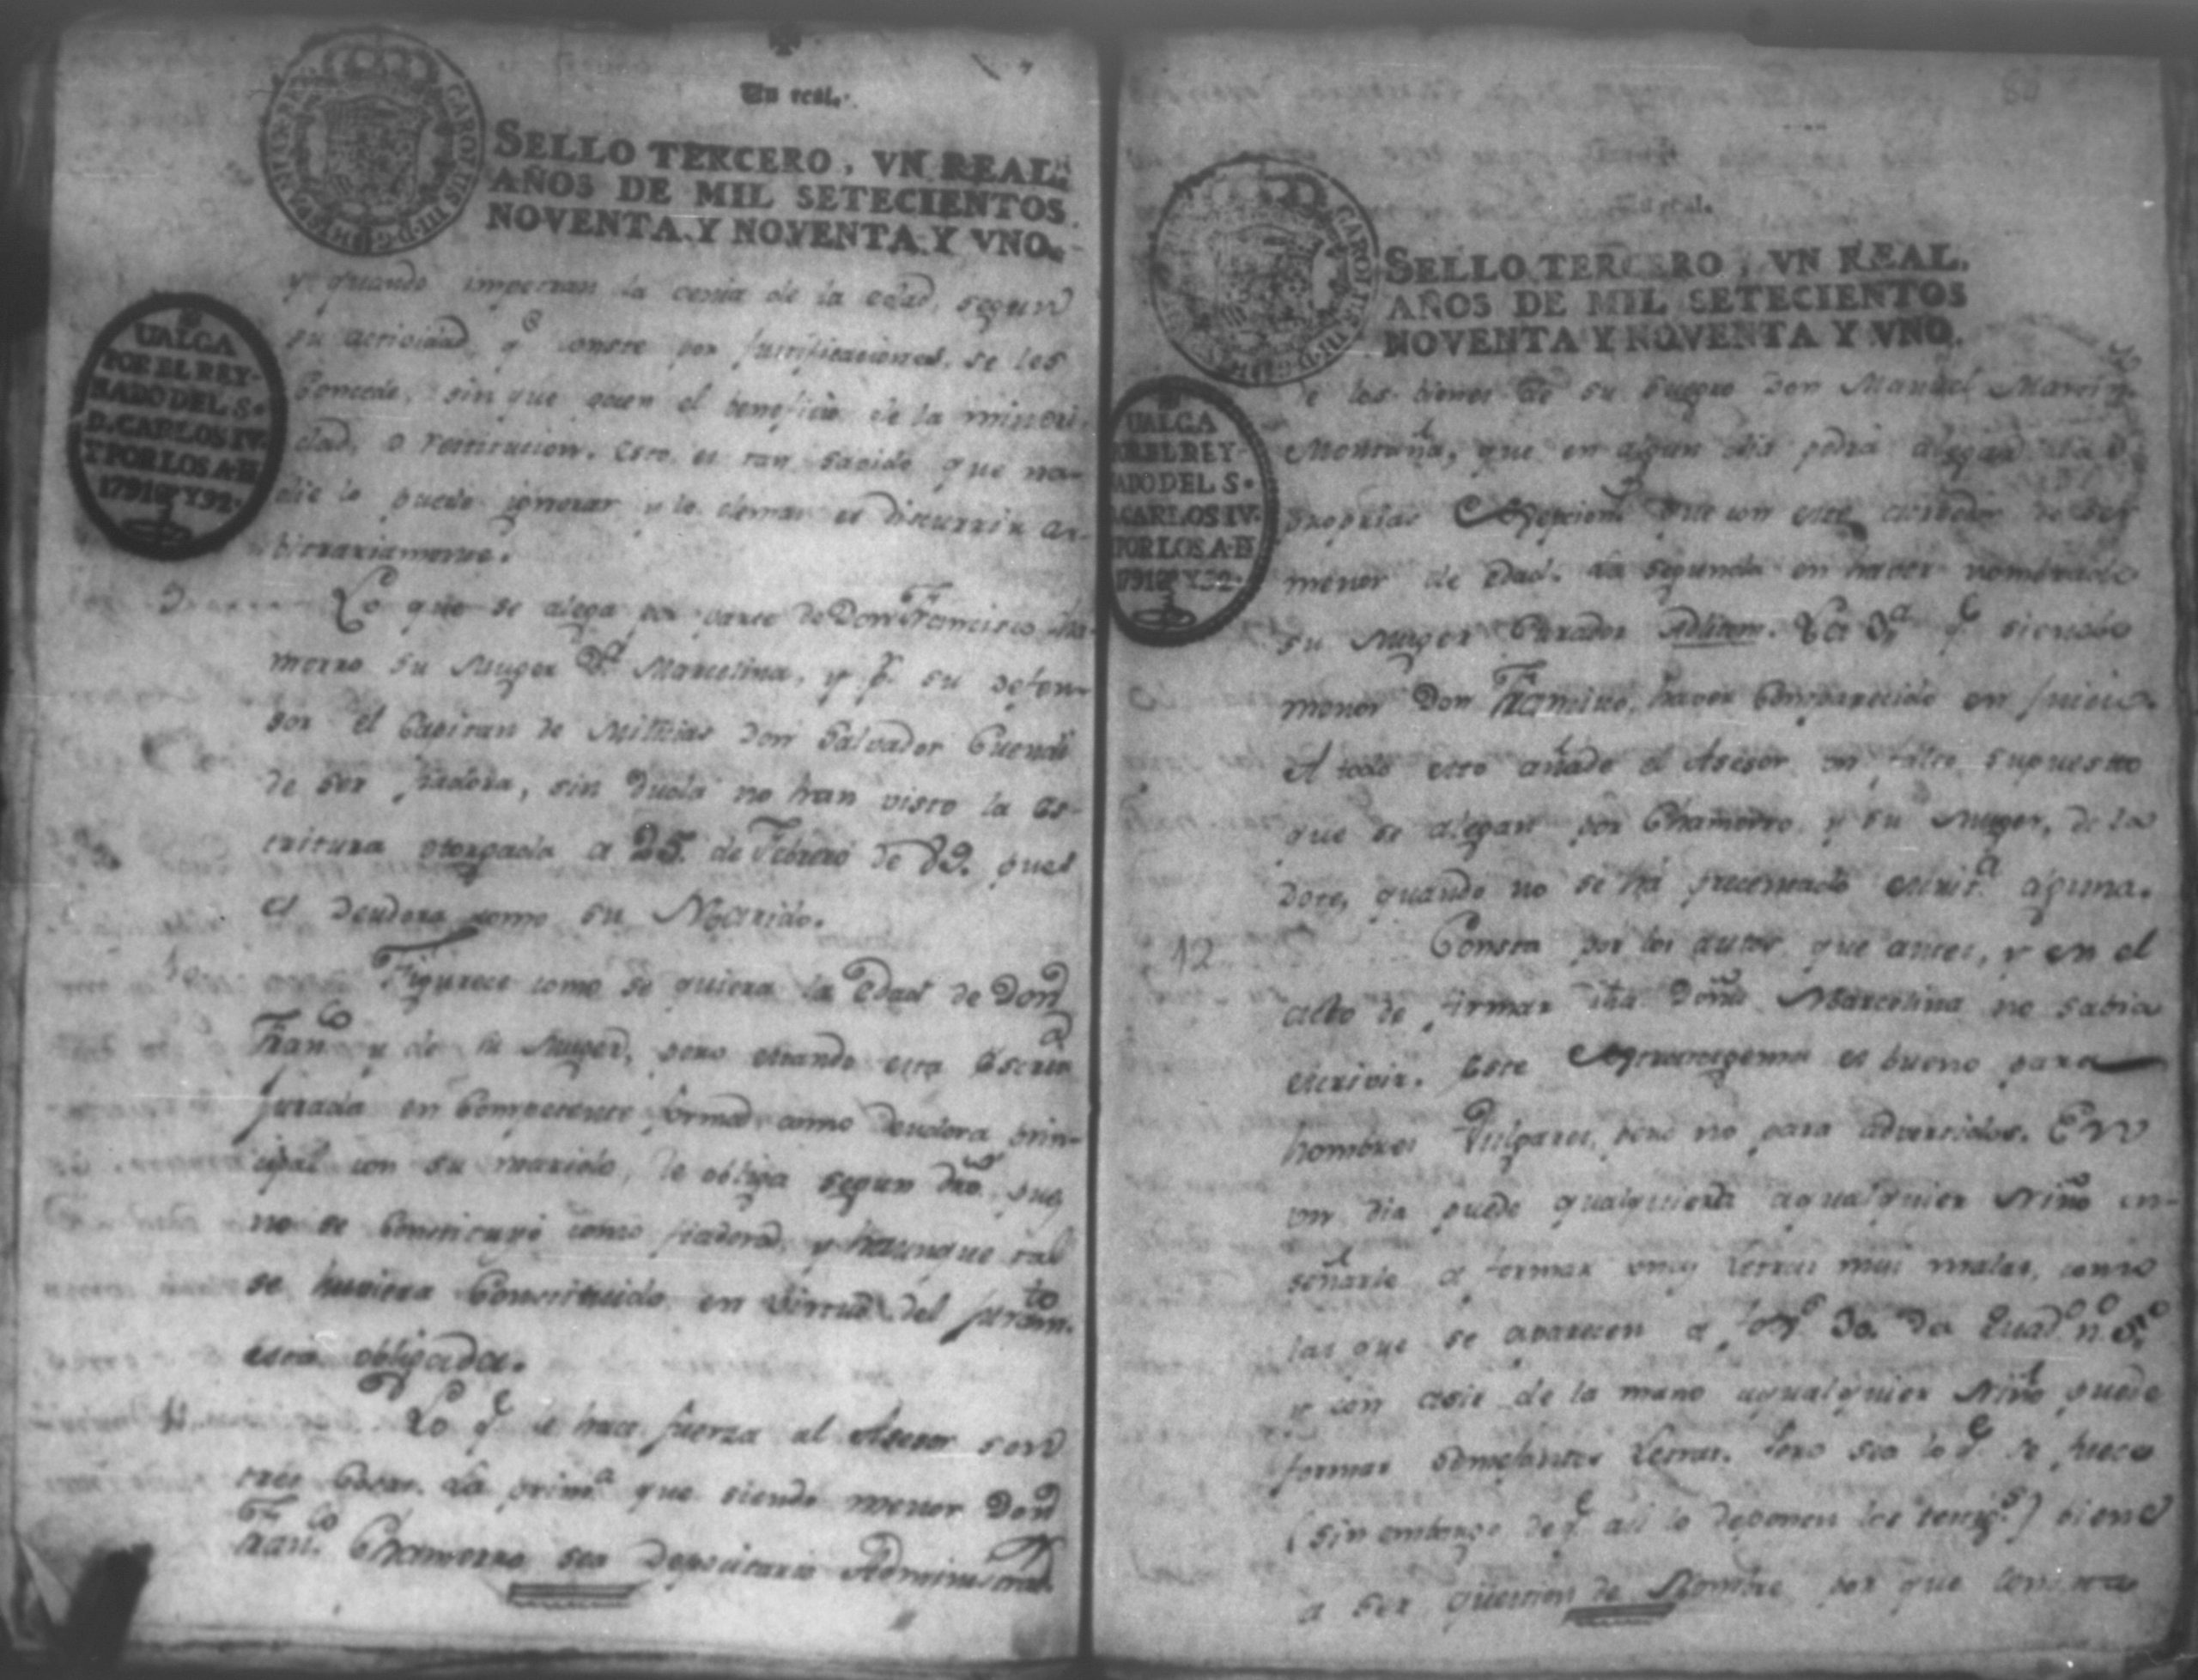 Un real.
SELLO TERCERO, VN REAL.
AÑOS DE MIL SETECIENTOS
NOVENTA Y NOVENTA Y VNO.
UALGA
POR EL REY-
NADO DEL S.
D. CARLOS IV.
Y POR LOS A.D
1791 Y 92.
y quando impetran la venia de la edad, segun
su actividad, q^e conste por justificaciones, se les
Concede, sin que el beneficio de la minori
dad, o restitucion. Esto es tan sabido que na-
die lo puede ignorar y lo demas es discurrir ar-
bitrariamente.
Lo que se alega por parte de Don Francisco Cha-
morro su Muger D^a Marcelina, y p^r su defen-
sor el Capitan de Milicias Don Salvador
de ser fiadora, sin duda no han visto la es-
critura otorgada a 25. de Febrero de 89. pues
es deudora como su Marido.
Figurece como se quiera la Edad de Don
Fran^co y de su Muger, pero estando esta
jurada en Competente forma como deudora prin-
cipal con su marido, le obliga segun dro. pues
no se Constituyó como fiadora, y haunque tal
se huviera Constituido en virtud del juram^to
esta obligada.
11 Lo q^e le hace fuerza al Asesor son
tres Cosas. La prim^a que siendo menor Don
Fran^co Chamorro sea Depocitario Administrad^r
SELLO TERCERO, VN REAL.
AÑOS DE MIL SETECIENTOS
NOVENTA Y NOVENTA Y VNO.
UALGA
POR EL REY-
NADO DEL S.
D. CARLOS IV.
Y POR LOS A.D
1791 Y 92.
de los bienes de su Suegro Don Manuel Martin
Montaña, que en algun dia podrá alegar la
propia que con este de ser
menor de edad. La segunda en haver nombrado
su Muger Curador Adlitem. La 3^a q^e siendo
menor Don Francisco, haver Comparecido en juicio.
A todo esto añade el Asesor un falso supuesto
que se alegan por Chamorro y su Muger, de la
Dote, quando no se ha presentado escrit^a alguna.
12 Consta por los autos que antes, y en el
acto de firmar Doña Marcelina no sabia
escrivir. Este es bueno para
hombres Vulgares, pero no para advertidos. En
un dia puede qualquiera aqualquier Niño en-
señarle a formar unas Letras mui malas, como
las que se aparecen a 30. Quad^o n^o 5^o
y con asir de la mano aqualquier Niño puede
formar Semejantes Letras. Pero sea lo q^e se fuere
(sin embargo de q^e asi lo deponen los testig^s) viene
a ser question de Nombre por que